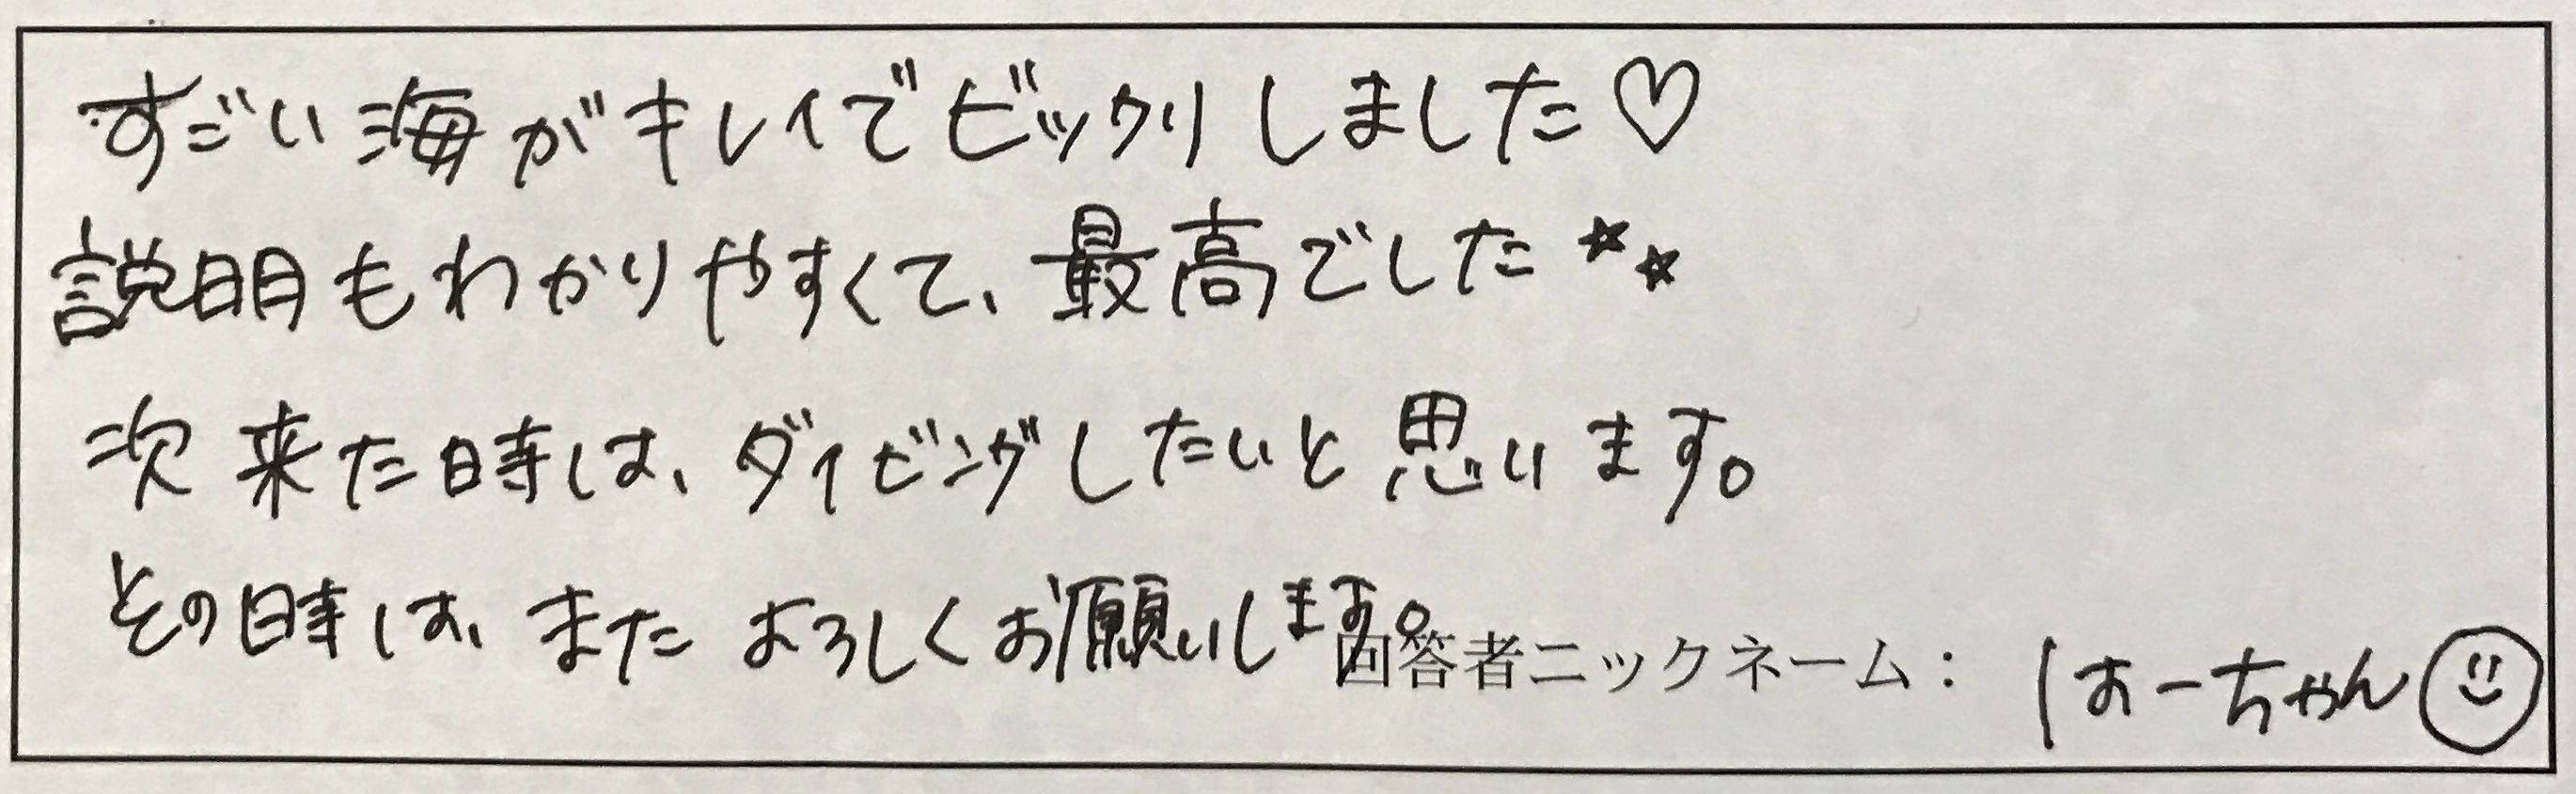 すごい海がキレイでビックリしました♡
説明もわかりやすくて、最高でした★★
次来た時は、ダイビングしたいと思います。
その時は、またよろしくお願いします。
回答者ニックネーム： はーちゃん☺